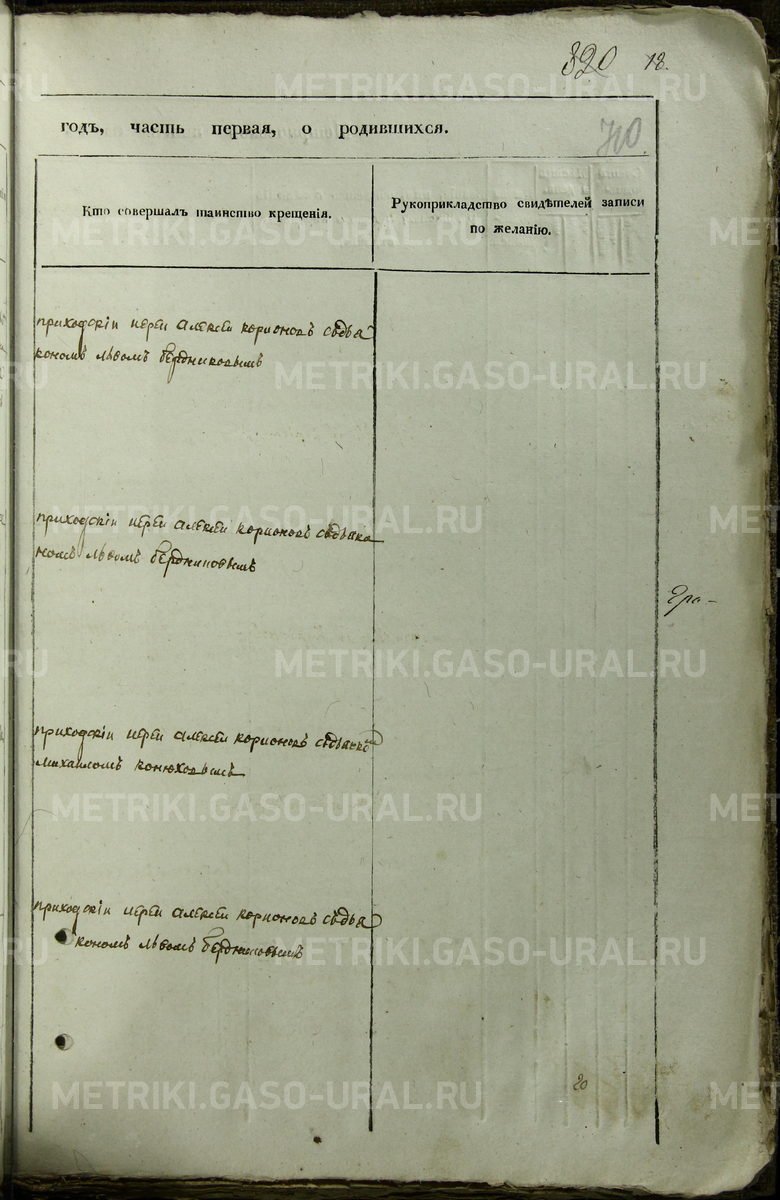 320 18.
годъ, часть первая, о родившихся.
710
Кто совершалъ таинство крещенія.
Рукоприкладство свидѣтелей записи
по желанію.
приходскіи иереи алексеи корионовъ съдья
кономъ львомъ бердниковымъ
приходскіи иереи алексеи корионовъ съдьяко
номъ львомъ бердниковымъ
приходскіи иереи алексеи корионовъ съдьяком
михаиломъ конюховымъ
приходскіи иереи алексеи корионовъ съдья
кономъ львомъ бердниковымъ
20
METRIKI.GASO-URAL.RU